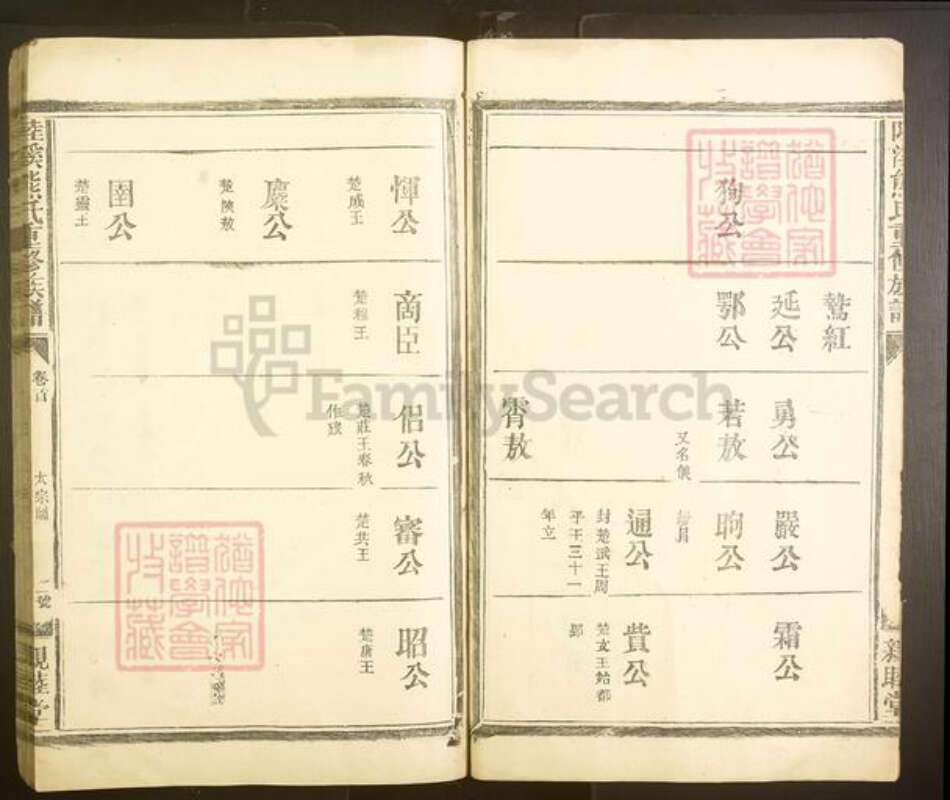 狥公
鷙紅
延公
鄂公
勇公
若敖
又名儀
霄敖
嚴公
昫公
通公
封楚武王周
平王三十一
年立
霜公
貲公
楚文王始都
郢
惲公
楚成王
麇公
楚陝敖
圍公
楚靈王
商臣
楚穆王
侶公
楚莊王春秋
作旅
審公
楚共王
昭公
楚康王
陸溪熊氏重修族譜
卷首
大宗圖
二號
親睦堂
FamilySearch